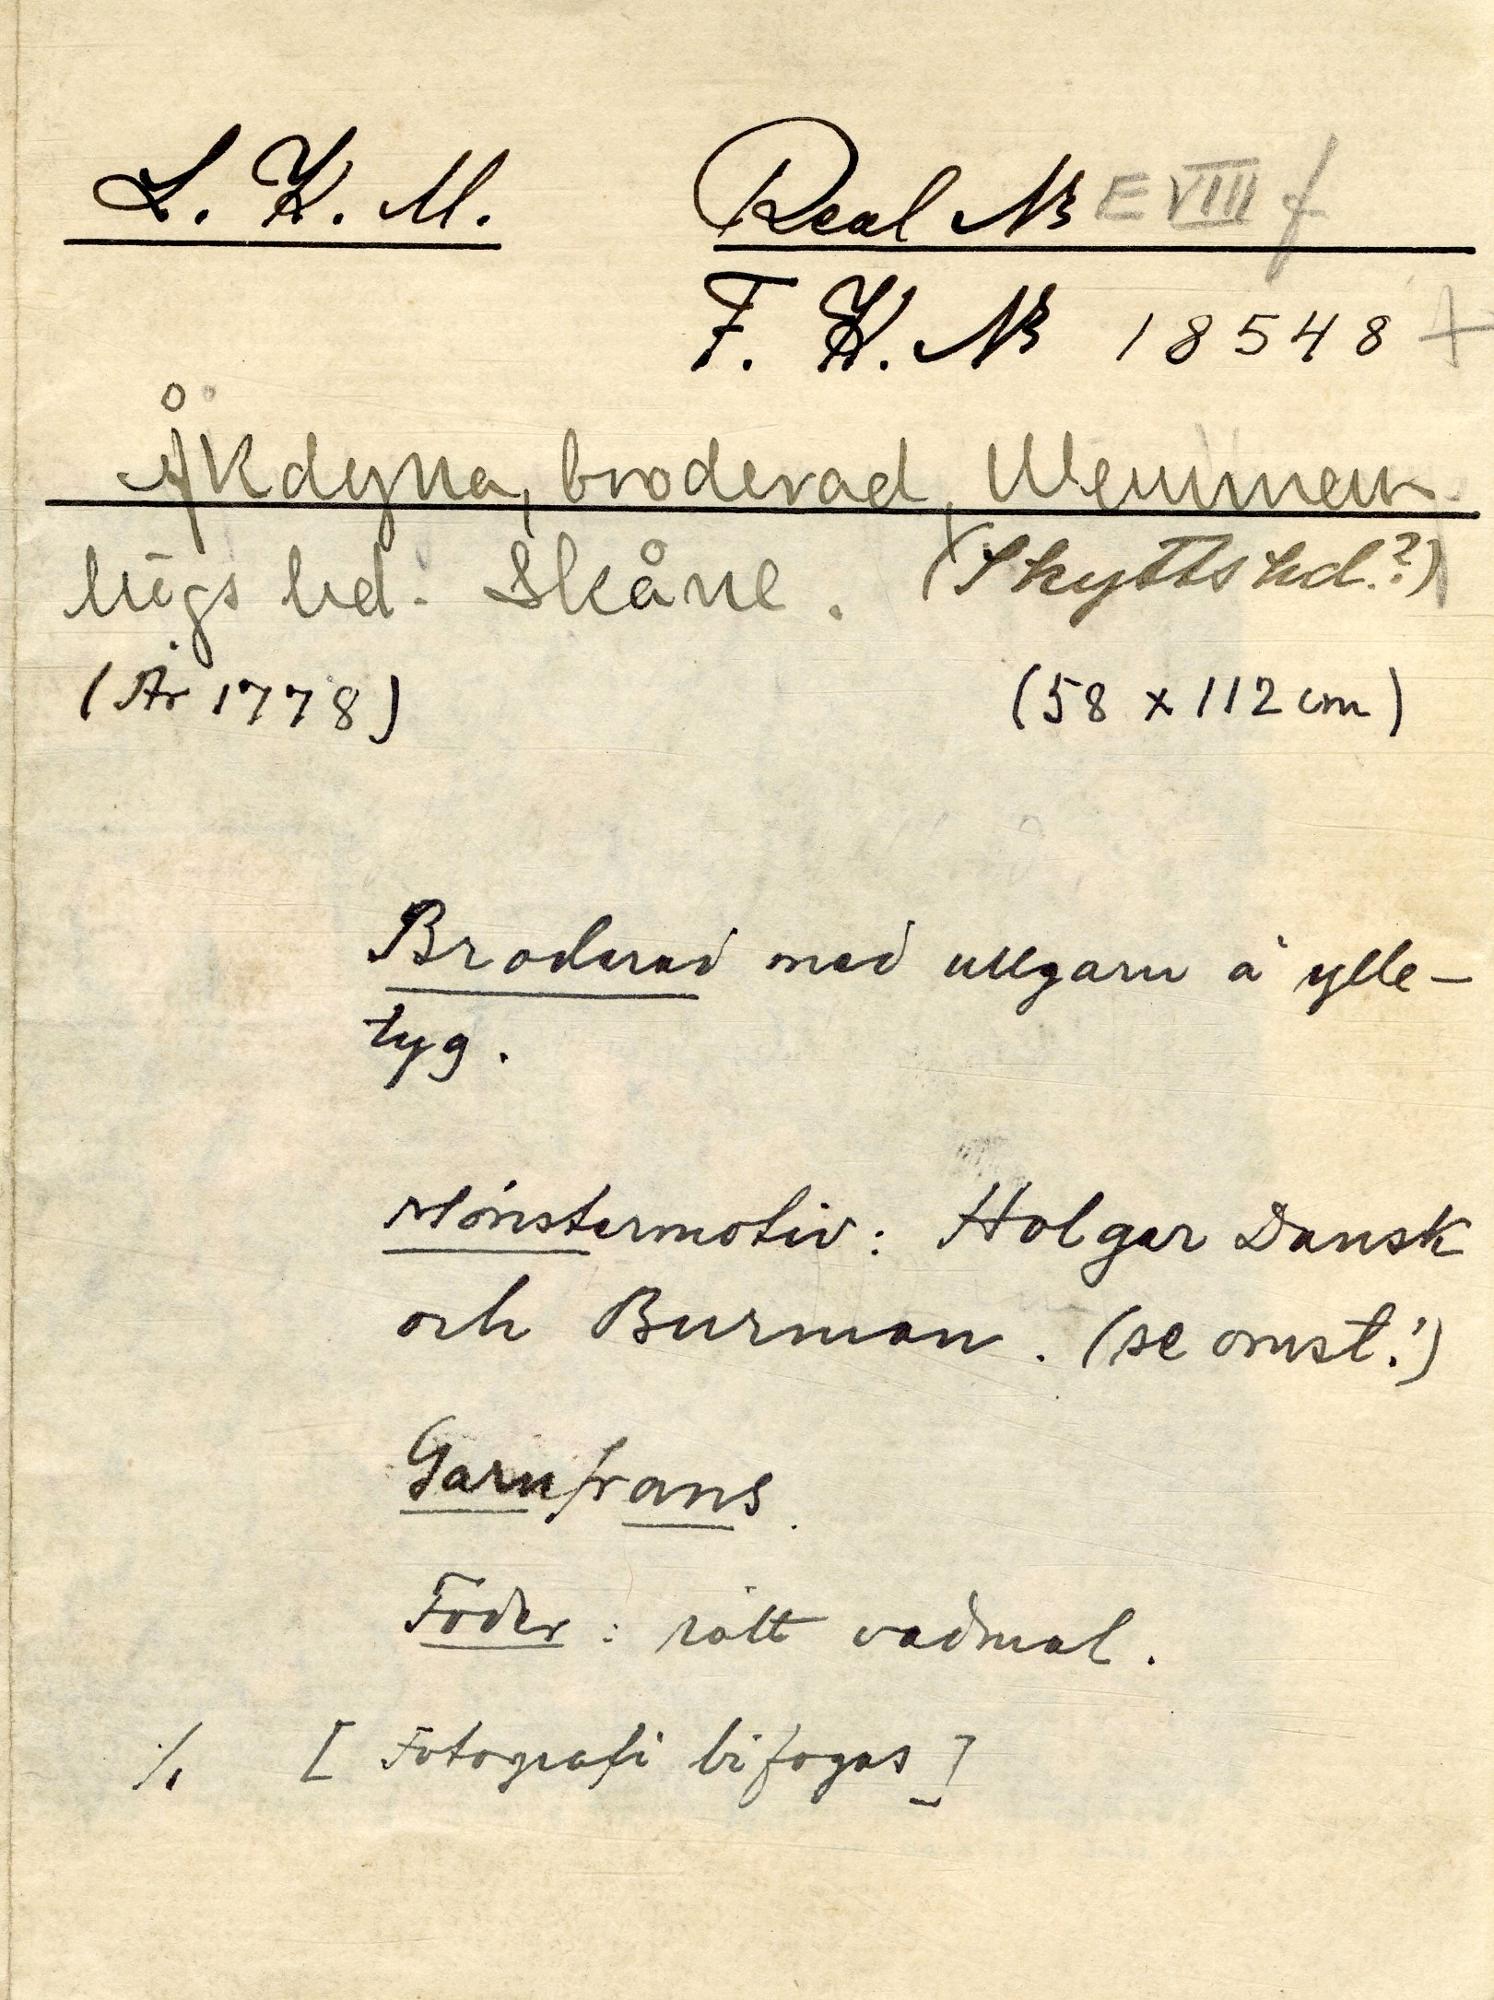 L. K. M. Real No E VIII f
F. K. No 18548 +
Åkdyna, broderad, Wemmen-
högs hd. Skåne. (Skytts hd.?)
(År 1778) (58 x 112 cm)
Broderad med ullgarn å ylle-
tyg.
Mönstermotiv: Holger Dansk
och Burman. (se omst.!)
Garnfrans.
Foder: rött vadmal.
./. [Fotografi bifogas]